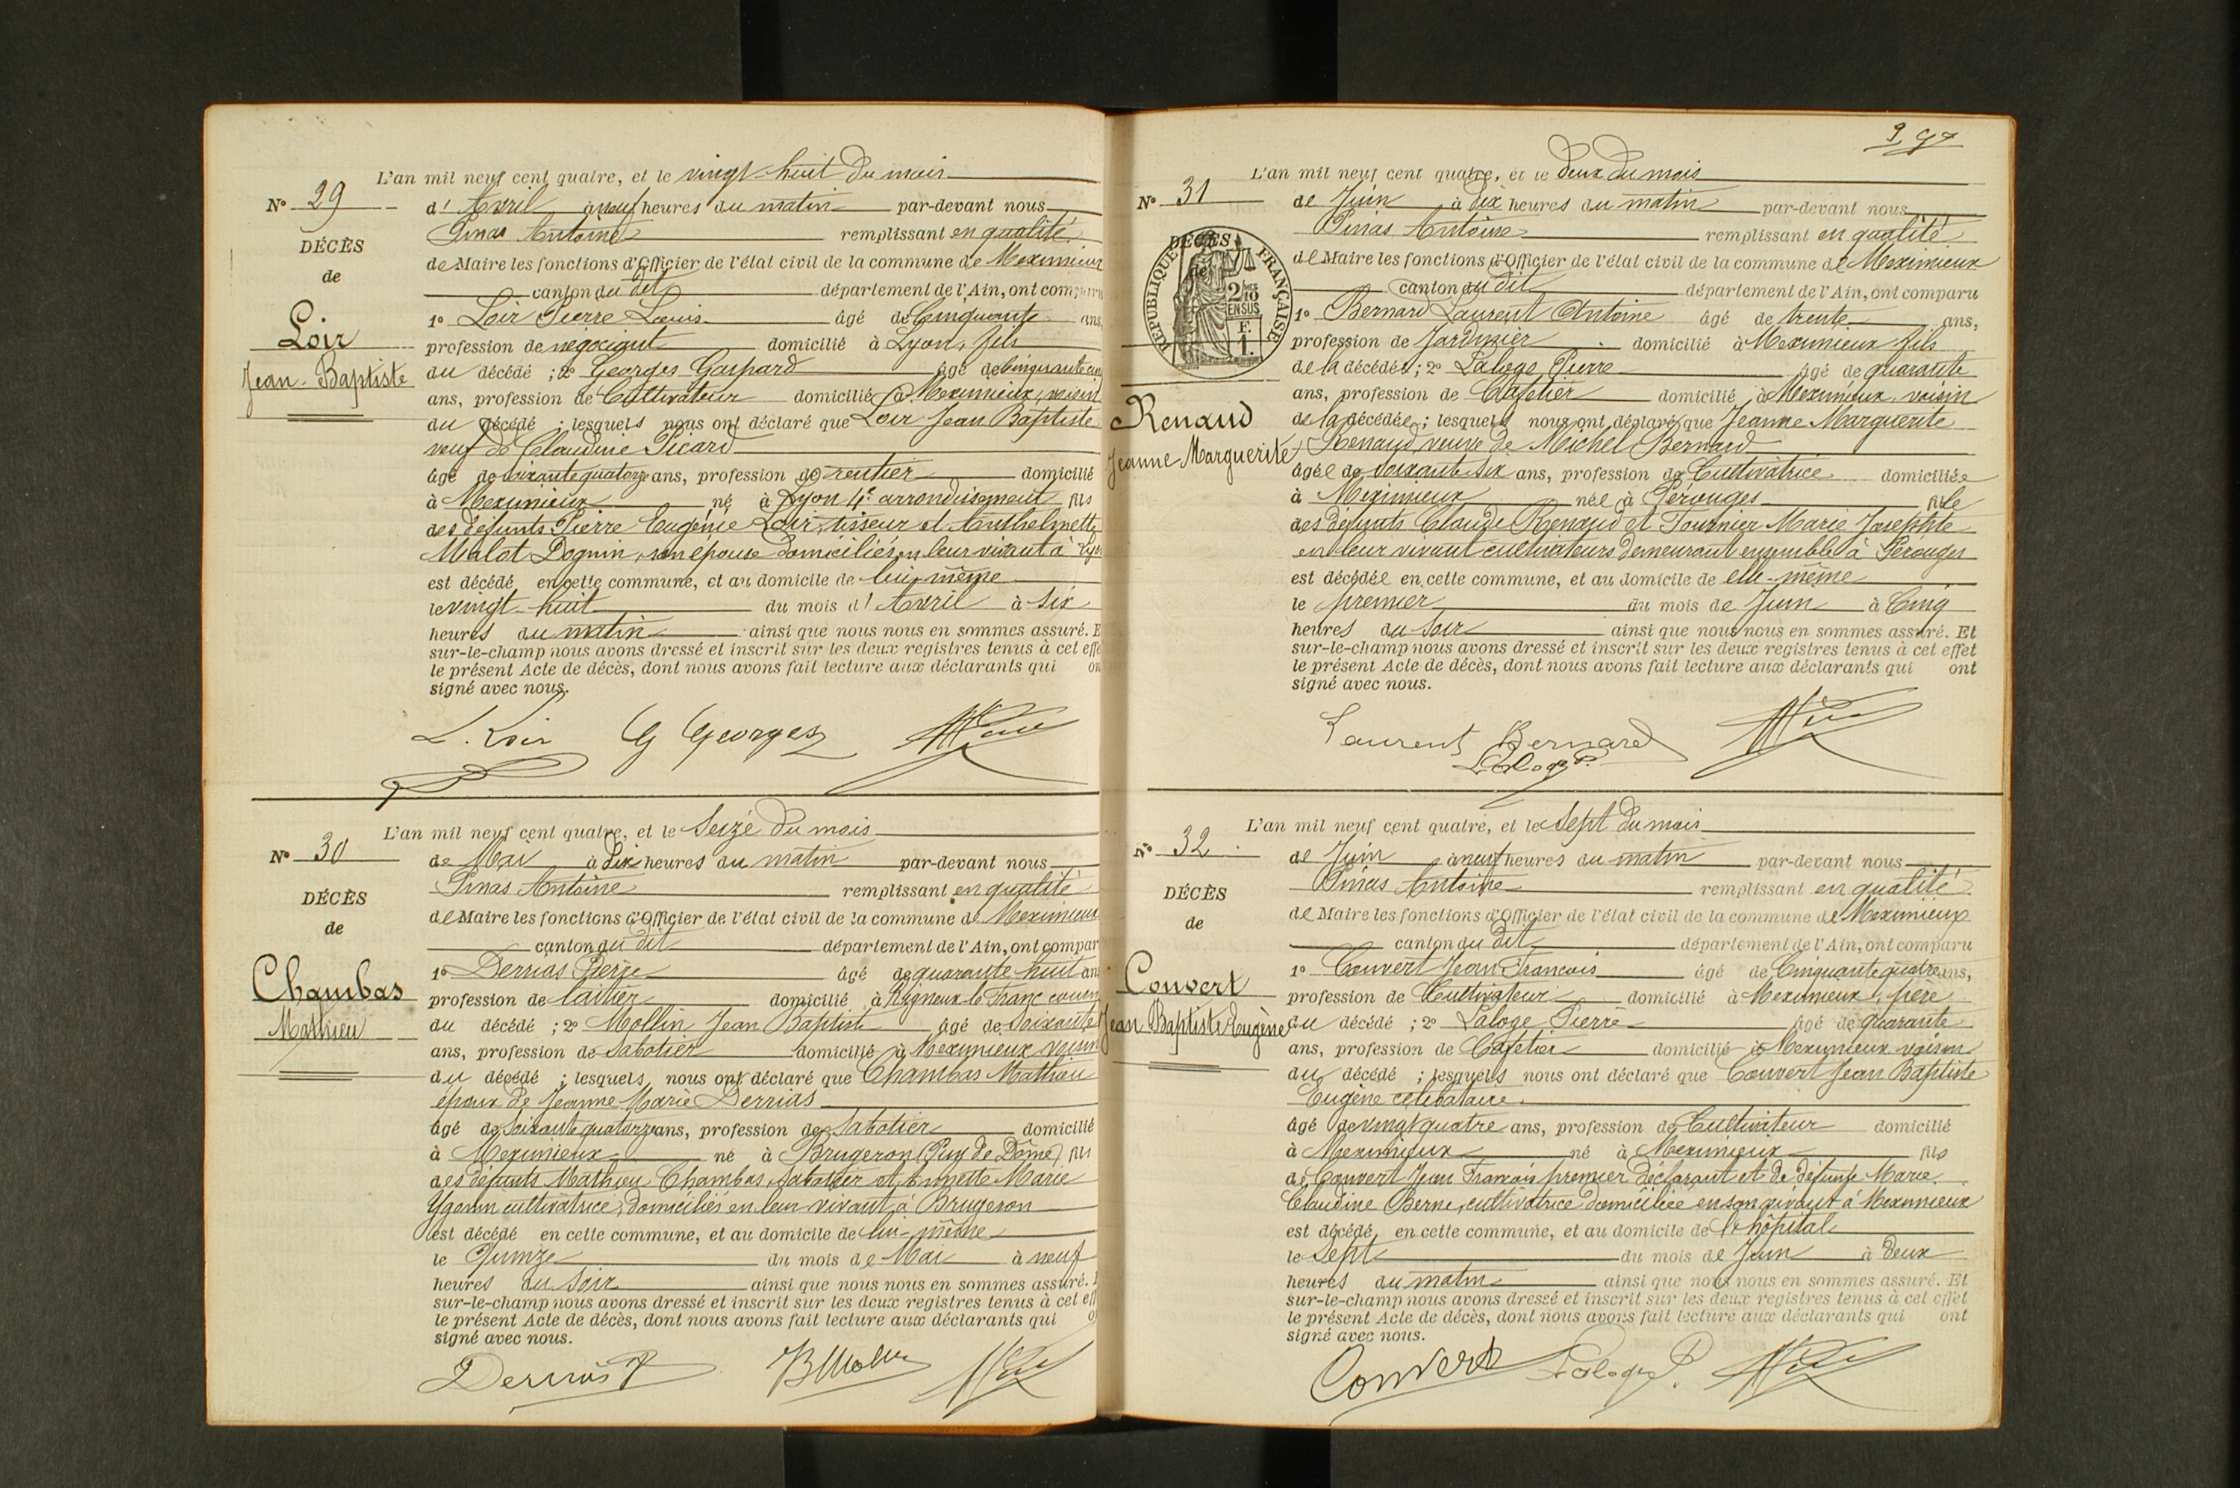 L'an mil neuf cent quatre, et le vingt-huit du mois
N° 29
d'Avril à neuf heures du matin par-devant nous
Pinas Antoine remplissant en qualité
DÉCÈS
de Maire les fonctions d'Officier de l'état civil de la commune de Meximieux
de
canton du dit département de l'Ain, ont comparu
1° Loir Pierre Louis âgé de Cinquante ans,
Loir
profession de négociant domicilié à Lyon, fils
Jean-Baptiste
du décédé ; 2° Georges Gaspard âgé de Cinquante
ans, profession de Cultivateur domicilié à Meximieux, voisin
du décédé ; lesquels nous ont déclaré que Loir Jean Baptiste
veuf de Claudine Picard
âgé de soixante quatorze ans, profession de rentier domicilié
à Meximieux né à Lyon 4e arrondissement fils
des défunts Pierre Eugénie Loir, tisseur et Anthelmette
Malot Doguin, son épouse domiciliés en leur vivant à Lyon
est décédé en cette commune, et au domicile de lui-même
le vingt-huit du mois d'Avril à six
heures du matin ainsi que nous nous en sommes assuré. E
sur-le-champ nous avons dressé et inscrit sur les deux registres tenus à cet effe
le présent Acte de décès, dont nous avons fait lecture aux déclarants qui on
signé avec nous.
L. Loir G Georges
L'an mil neuf cent quatre, et le Seize du mois
N° 30
de Mai à Dix heures du matin par-devant nous
Pinas Antoine remplissant en qualité
DÉCÈS
de Maire les fonctions d'Officier de l'état civil de la commune de Meximieux
de
canton du dit département de l'Ain, ont compar
Chambas
1° Derrias Pierre âgé de quarante huit an
profession de laitier domicilié à Rigneux le Franc
Mathieu
du décédé ; 2° Mollin Jean Baptiste âgé de Soixante
ans, profession de Sabotier domicilié à Meximieux voisin
du décédé ; lesquels nous ont déclaré que Chambas Mathieu
époux de Jeanne Marie Derrias
âgé de soixante quatorze ans, profession de Sabotier domicilié
à Meximieux né à Brugeron (Puy de Dôme) fils
des défunts Mathieu Chambas, Sabotier et Annette Marie
cultivatrice, domiciliés en leur vivant à Brugeron
est décédé en cette commune, et au domicile de lui-même
le Quinze du mois de Mai à neuf
heures du soir ainsi que nous nous en sommes assuré.
sur-le-champ nous avons dressé et inscrit sur les deux registres tenus à cet eff
le présent Acte de décès, dont nous avons fait lecture aux déclarants qui o
signé avec nous.
Derrias P BMollin
L'an mil neuf cent quatre, et le deux du mois
N° 31
de Juin à dix heures du matin par-devant nous
Pinas Antoine remplissant en qualité
DÉCÈS
RÉPUBLIQUE FRANÇAISE
2/10 EN SUS
F. 1.
de Maire les fonctions d'Officier de l'état civil de la commune de Meximieux
de
canton du dit département de l'Ain, ont comparu
1° Bernard Laurent Antoine âgé de trente ans,
profession de Jardinier domicilié à Meximieux fils
de la décédée ; 2° Laloge Pierre âgé de quarante
ans, profession de Cafetier domicilié à Meximieux, voisin
Renaud
de la décédée ; lesquels nous ont déclaré que Jeanne Marguerite
Jeanne Marguerite
Renaud veuve de Michel Bernard
âgée de soixante six ans, profession de Cultivatrice domiciliée
à Meximieux née à Pérouges fille
des défunts Claude Renaud et Fournier Marie Josephte
en leur vivant cultivateurs demeurant ensemble à Pérouges
est décédée en cette commune, et au domicile de elle-même
le premier du mois de Juin à Cinq
heures du soir ainsi que nous nous en sommes assuré. Et
sur-le-champ nous avons dressé et inscrit sur les deux registres tenus à cet effet
le présent Acte de décès, dont nous avons fait lecture aux déclarants qui ont
signé avec nous.
Laurent Bernard
Laloge P.
L'an mil neuf cent quatre, et le Sept du mois
N° 32
de Juin à neuf heures du matin par-devant nous
Pinas Antoine remplissant en qualité
DÉCÈS
de Maire les fonctions d'Officier de l'état civil de la commune de Meximieux
de
canton du dit département de l'Ain, ont comparu
Convert
1° Convert Jean François âgé de Cinquante quatre ans,
profession de Cultivateur domicilié à Meximieux, père
Jean Baptiste Eugène
du décédé ; 2° Laloge Pierre âgé de quarante
ans, profession de Cafetier domicilié à Meximieux voisin
du décédé ; lesquels nous ont déclaré que Convert Jean Baptiste
Eugène célibataire.
âgé de vingt quatre ans, profession de Cultivateur domicilié
à Meximieux né à Meximieux fils
de Convert Jean François premier déclarant et de défunte Marie
Claudine Berne, cultivatrice domiciliée en son vivant à Meximieux
est décédé en cette commune, et au domicile de l'hôpital
le Sept du mois de Juin à deux
heures du matin ainsi que nous nous en sommes assuré. Et
sur-le-champ nous avons dressé et inscrit sur les deux registres tenus à cet effet
le présent Acte de décès, dont nous avons fait lecture aux déclarants qui ont
signé avec nous.
Convert Laloge P.